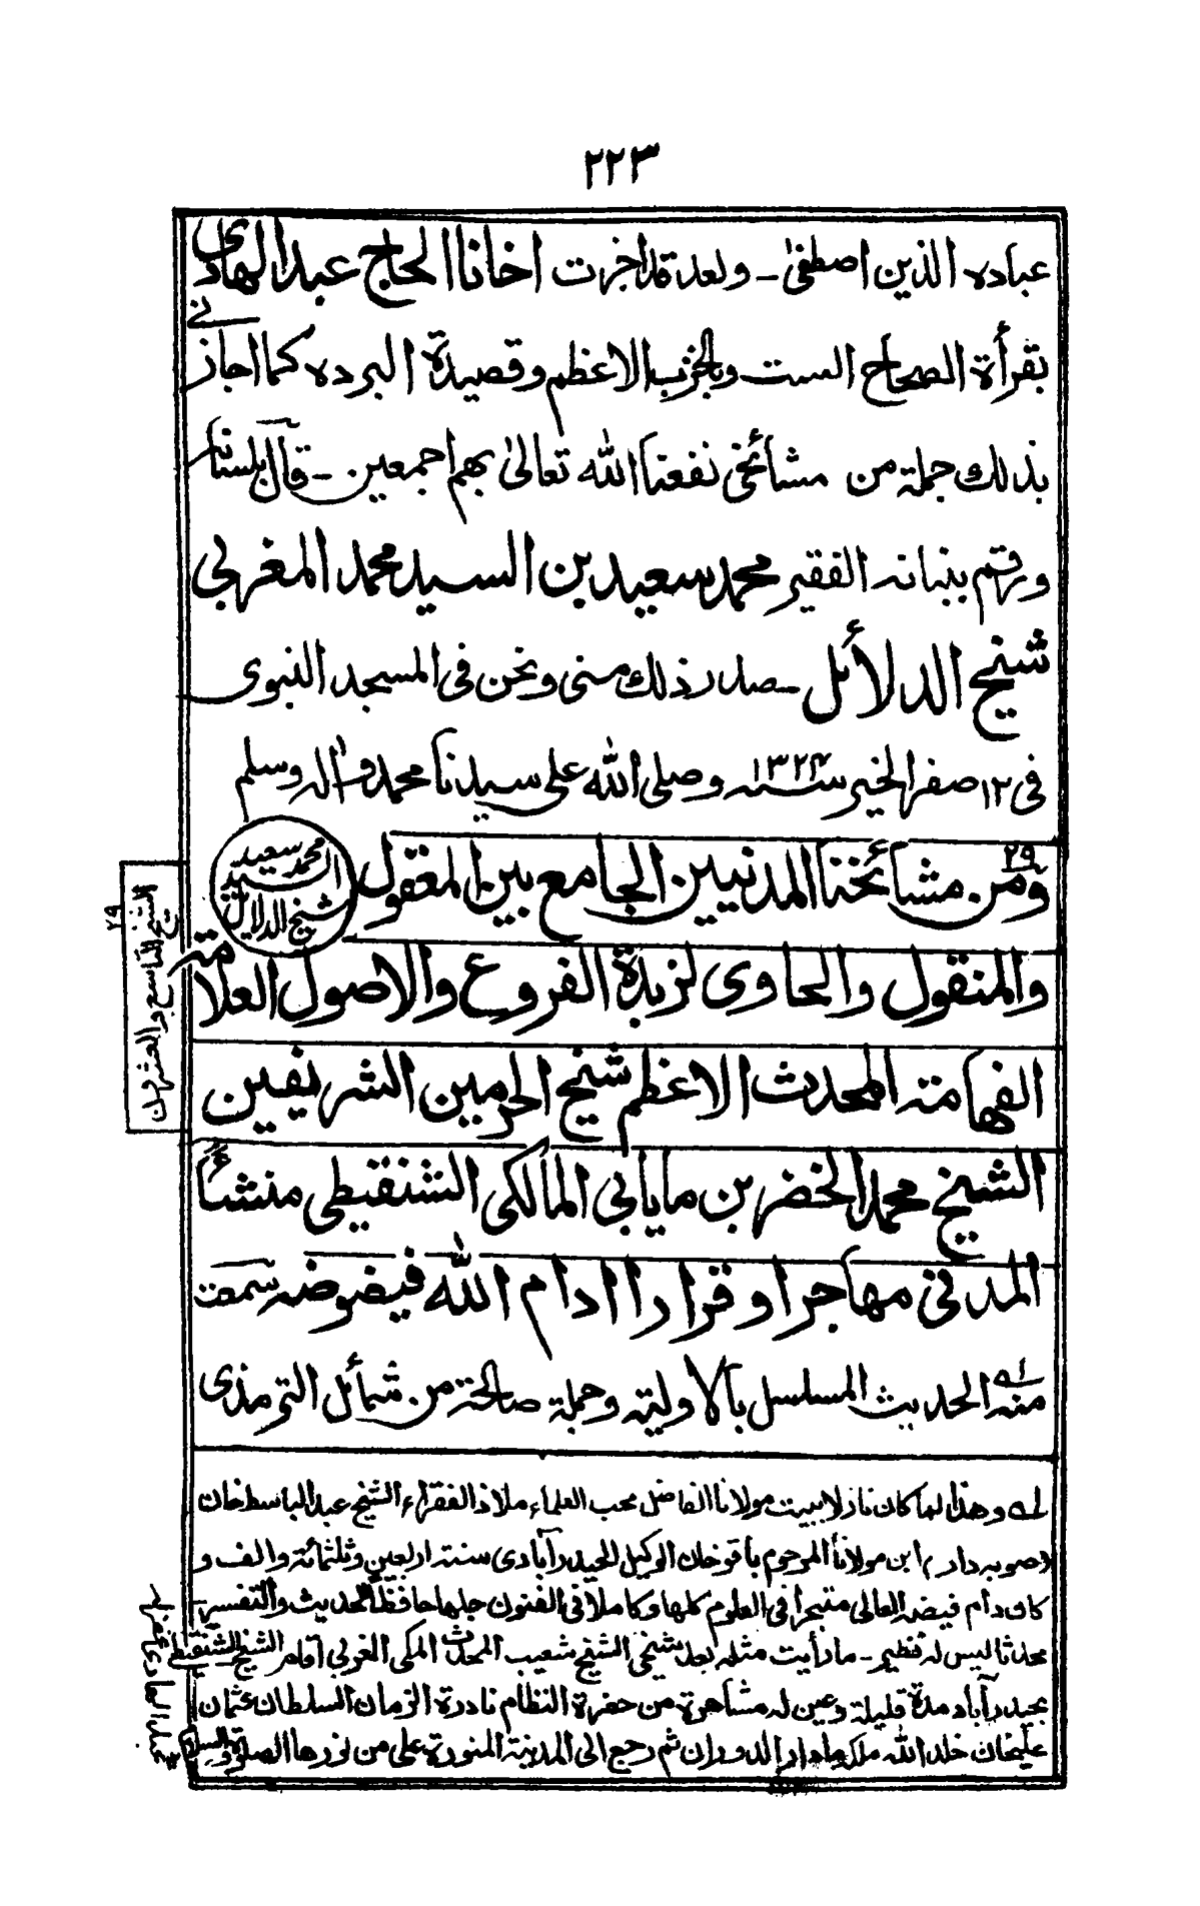 ٢٢٣
عباده الذين اصطفیٰ ـ وبعد قد اجزت اخانا الحاج عبد الهادی
بقرأة الصحاح الست وبالحزب الاعظم وقصيدة البرده كما اجازنے
بذلك جملة من مشائخی نفعنا الله تعالیٰ بهم اجمعين ـ قال بلسانه
ورقم ببنانه الفقير محمد سعيد بن السيد محمد المغربی
شيخ الدلائل ـ صدر ذلك منی ونحن فی المسجد النبوی
فی ١٢ صفر الخير سنه ١٣٢٤ وصلی الله علی سيدنا محمد واله وسلم
محمد سعيد السيد شيخ الدلائل
٢٩
ومن مشائخنا المدنيين الجامع بين المعقول
والمنقول والحاوی لزبدة الفروع والاصول العلامة
الفهامة المحدث الاعظم شيخ الحرمين الشريفين
الشيخ محمد الخضر بن مايابی المالكی الشنقيطی منشأً
المدنی مهاجرا وقرارا ادام الله فيوضه سمعت
منه لے الحديث المسلسل بالاولية وجملة صالحة من شمائل الترمذی
٢٩
الشيخ التاسع والعشرون
لے وهذا لما كان نازلا ببيت مولانا الفاضل محب العلماء ملاذ الفقراء الشيخ عبد الباسط خان
(صوبه دار) ابن مولانا المرحوم باقوخان الوكيل الحيدرآبادی سنة اربعين وثلثمائة والف و
كان دام فيضه العالی متبحرا فی العلوم كلها وكاملا فی الفنون جلها حافظا لحديث والتفسير
محدثا ليس له نظير ـ ما رأيت مثله بعد شيخی الشيخ شعيب المحدث المكی المغربی اقام الشيخ الشنقيطی
بحيدرآباد مدة قليلة وعين له مشاهرة من حضرة النظام نادرة الزمان السلطان عثمان
عليخان خلد الله ملكه مادار الدوران ثم رجع الی المدينة المنورة علی من نورها الصلوة والسلام